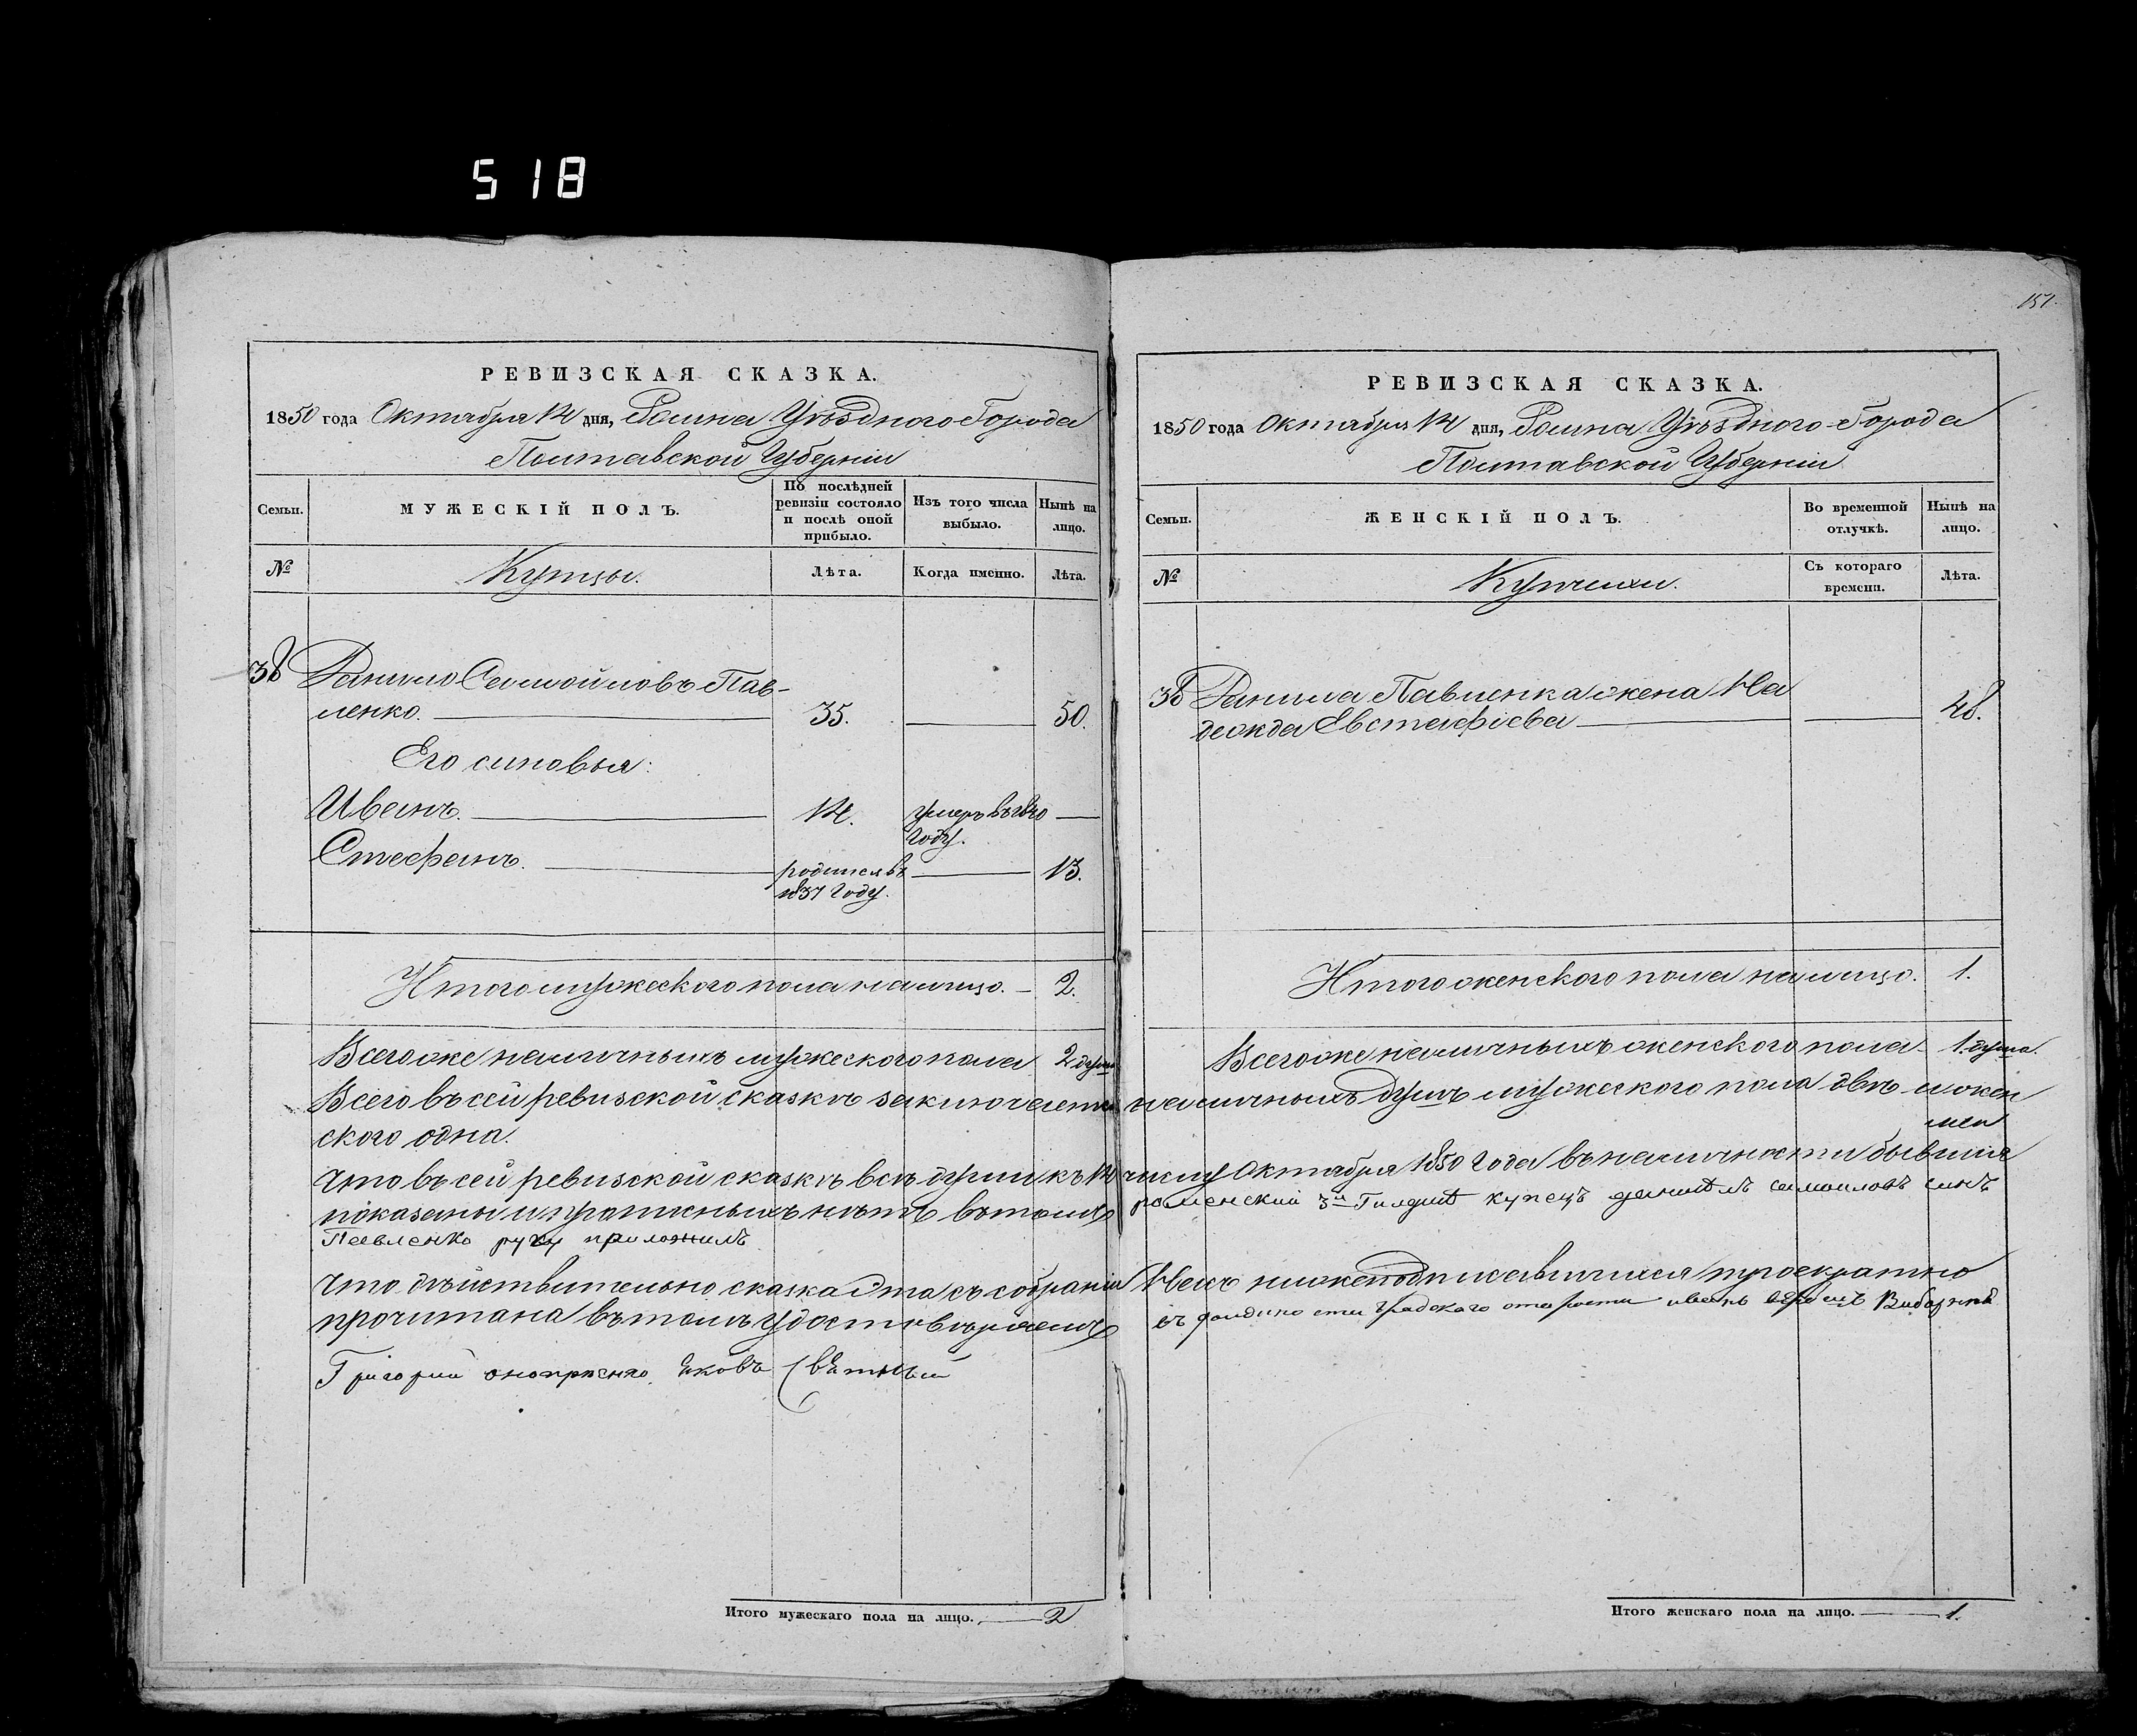 518
РЕВИЗСКАЯ СКАЗКА.
1850 года Октября 14 дня, Ромна Уѣзднаго Города
Полтавской Губерніи
Семьи.
МУЖЕСКІЙ ПОЛЪ.
По послѣдней ревизіи состояло и послѣ оной прибыло.
Изъ того числа выбыло.
Нынѣ на лицо.
№
Купцы.
Лѣта.
Когда именно.
Лѣта.
38 Данило Самойловъ Пав-
ленко. 35. 50.
Его синовья:
Иванъ. 14. умеръ въ 1840 году.
Стефанъ. родился въ 1837 году. 13.
Итого мужеского пола налицо. 2.
Всего же наличныхъ мужеского пола 2 души
Всего въ сей ревизской сказкѣ заключается
ского одна.
Что въ сей ревизской сказкѣ всѣ души къ 14
показаны и прописныхъ нѣтъ въ томъ
Павленко руку приложилъ
Что дѣйствительно сказка эта съ собранія
прочитана въ томъ удостовѣряемъ
Григорий Яковъ
Итого мужескаго пола на лицо. 2
151.
РЕВИЗСКАЯ СКАЗКА.
1850 года Октября 14 дня, Ромна Уѣздного Города
Полтавской Губерніи
Семьи.
ЖЕНСКІЙ ПОЛЪ.
Во временной отлучкѣ.
Нынѣ на лицо.
№
Купчихи.
Съ котораго времени.
Лѣта.
38 Данила Павленка жена На
дежда Евстафіева 48.
Итого женского пола налицо. 1.
Всего же наличныхъ женского пола 1. душа.
наличныхъ душъ мужеского пола двѣ и жен
числу Октября 1850 года въ наличности бывшия
роменский 3й Гилдиѣ купецъ самоиловъ синъ
Насъ нижеподписавшихся троекратно
градского старости иванъ
Итого женскаго пола на лицо. 1.